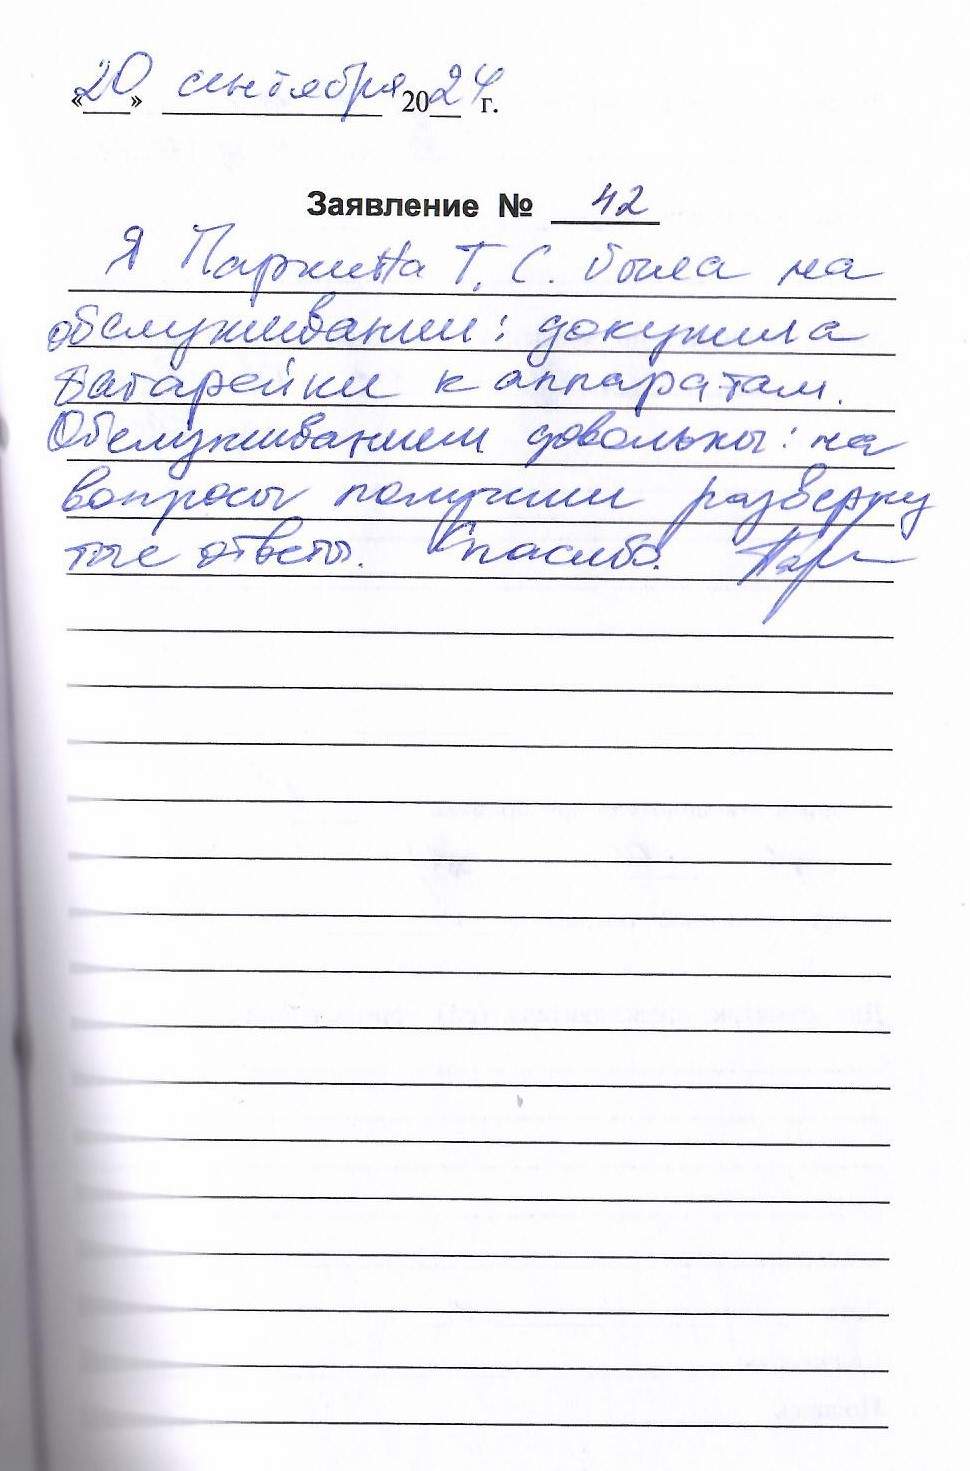 «20» сентября 2024 г.
Заявление № 42
Я Т. С. была на
обслуживании: докупила
батарейки к аппаратам.
Обслуживанием довольны: на
вопросы получили разверну
тые ответы. Спасибо.